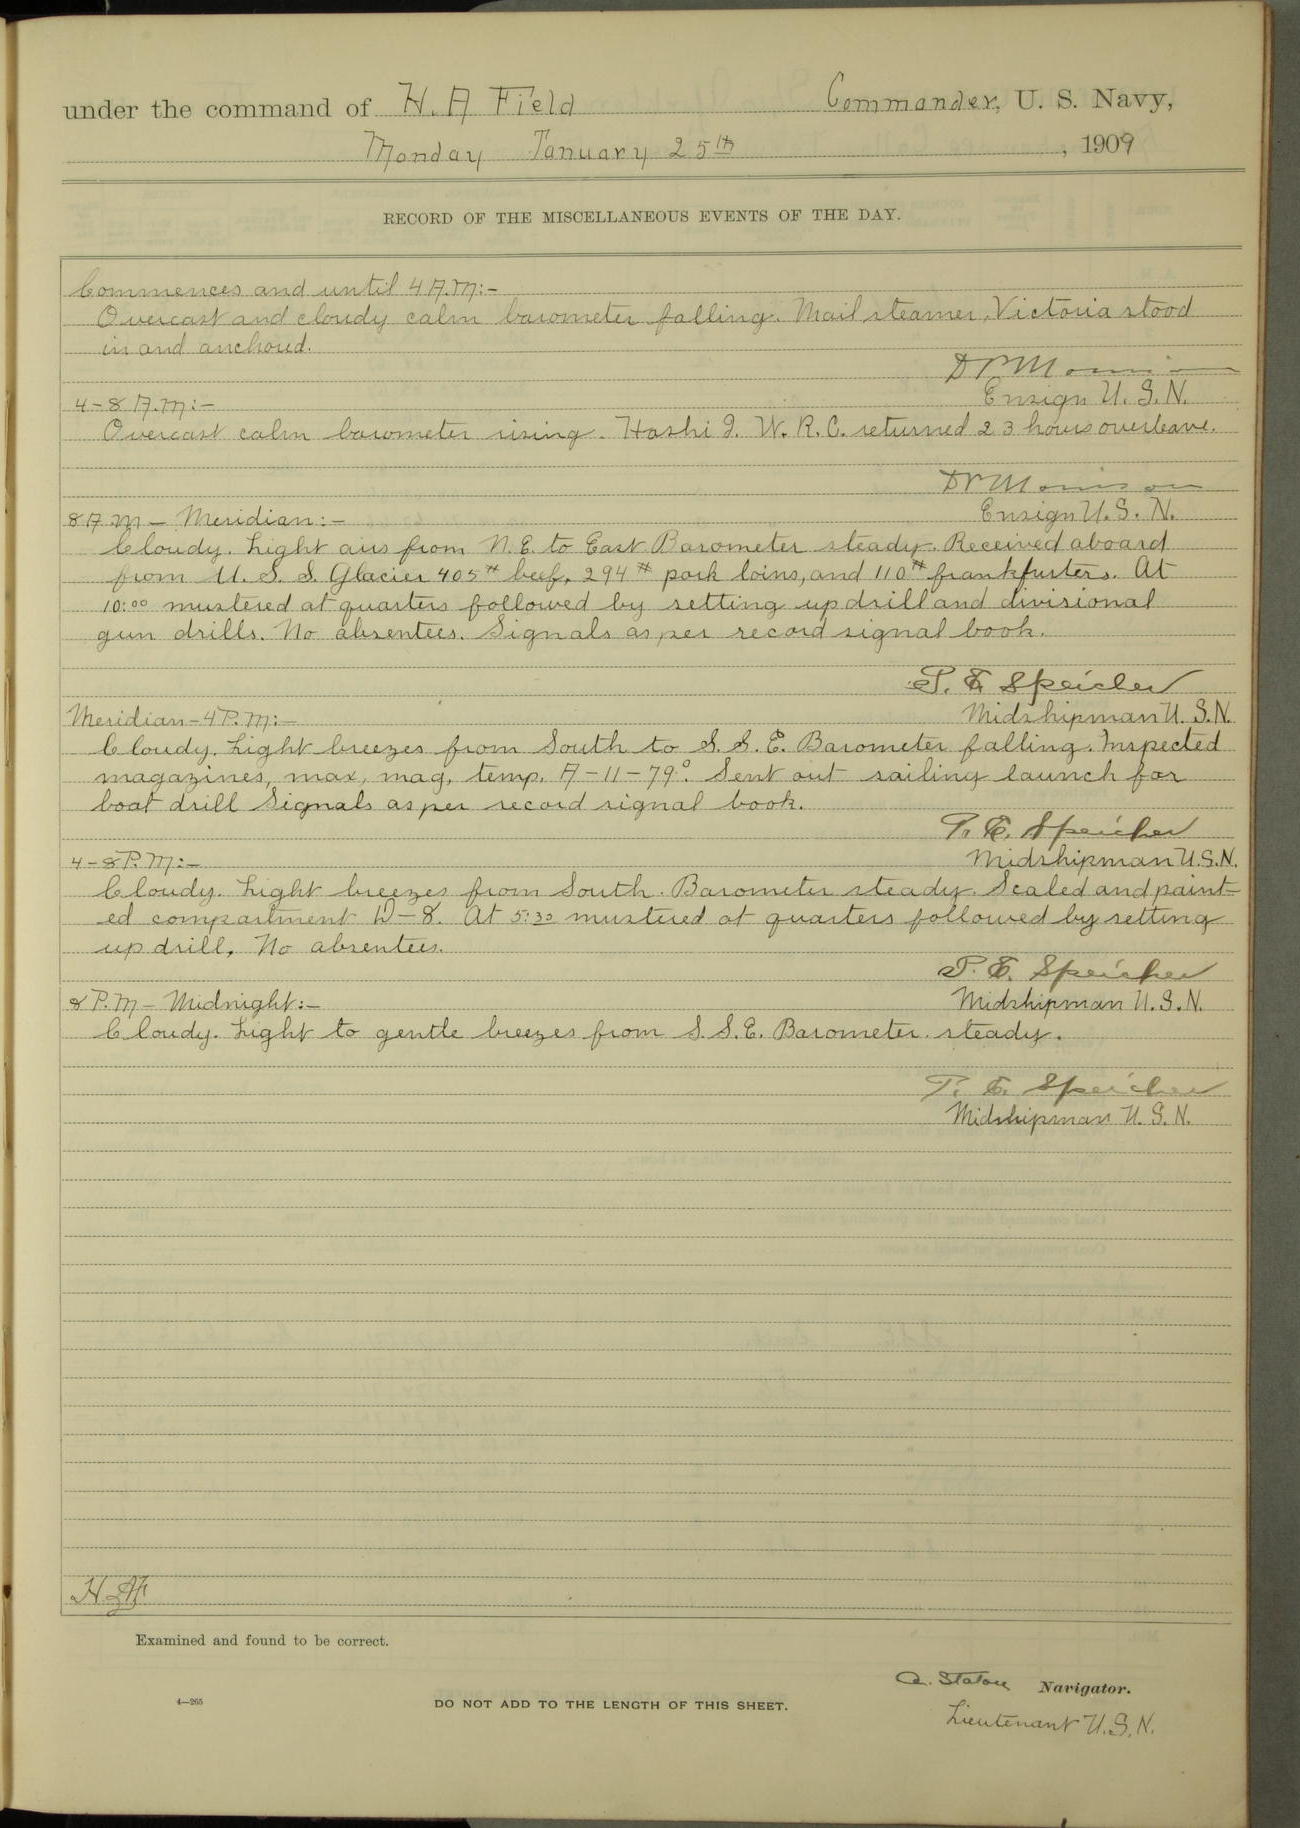 under the command of H. A Field Commander, U. S. Navy,
Monday January 25th, 1909
RECORD OF THE MISCELLANEOUS EVENTS OF THE DAY.
Commences and until 4 A.M:-
Overcast and cloudy calm barometer falling. Mail steamer, Victoria stood
in and anchored.
D P Morrison
Ensign U. S. N.
4-8 A.M:-
Overcast calm barometer rising. Hoshi I. W. R. C. returned 23 hours overleave.
D P Morrison
Ensign U. S. N.
8 A M - Meridian:-
Cloudy. Light airs from N.E. to East Barometer steady. Received aboard
from U. S. S. Glacier 405# beef, 294# pork loins, and 110# frankfurters. At
10:00 mustered at quarters followed by setting up drill and divisional
gun drills. No absentees. Signals as per record signal book.
P. E. Speicher
Midshipman U. S. N.
Meridian-4 P.M:-
Cloudy. Light breezes from South to S. S. E. Barometer falling. Inspected
magazines, max, mag, temp, A-11-79°. Sent out sailing launch for
boat drill Signals as per record signal book.
P. E. Speicher
Midshipman U.S.N.
4-8 P.M:-
Cloudy. Light breezes from South. Barometer steady. Scaled and paint-
ed compartment D-8. At 5:30 mustered at quarters followed by setting
up drill, No absentees.
P. E. Speicher
Midshipman U. S. N.
8 P.M - Midnight:-
Cloudy. Light to gentle breezes from S. S. E. Barometer steady.
P. E. Speicher
Midshipman U. S. N.
H A F
Examined and found to be correct.
A. Staton Navigator.
4-265
DO NOT ADD TO THE LENGTH OF THIS SHEET.
Lieutenant U. S. N.